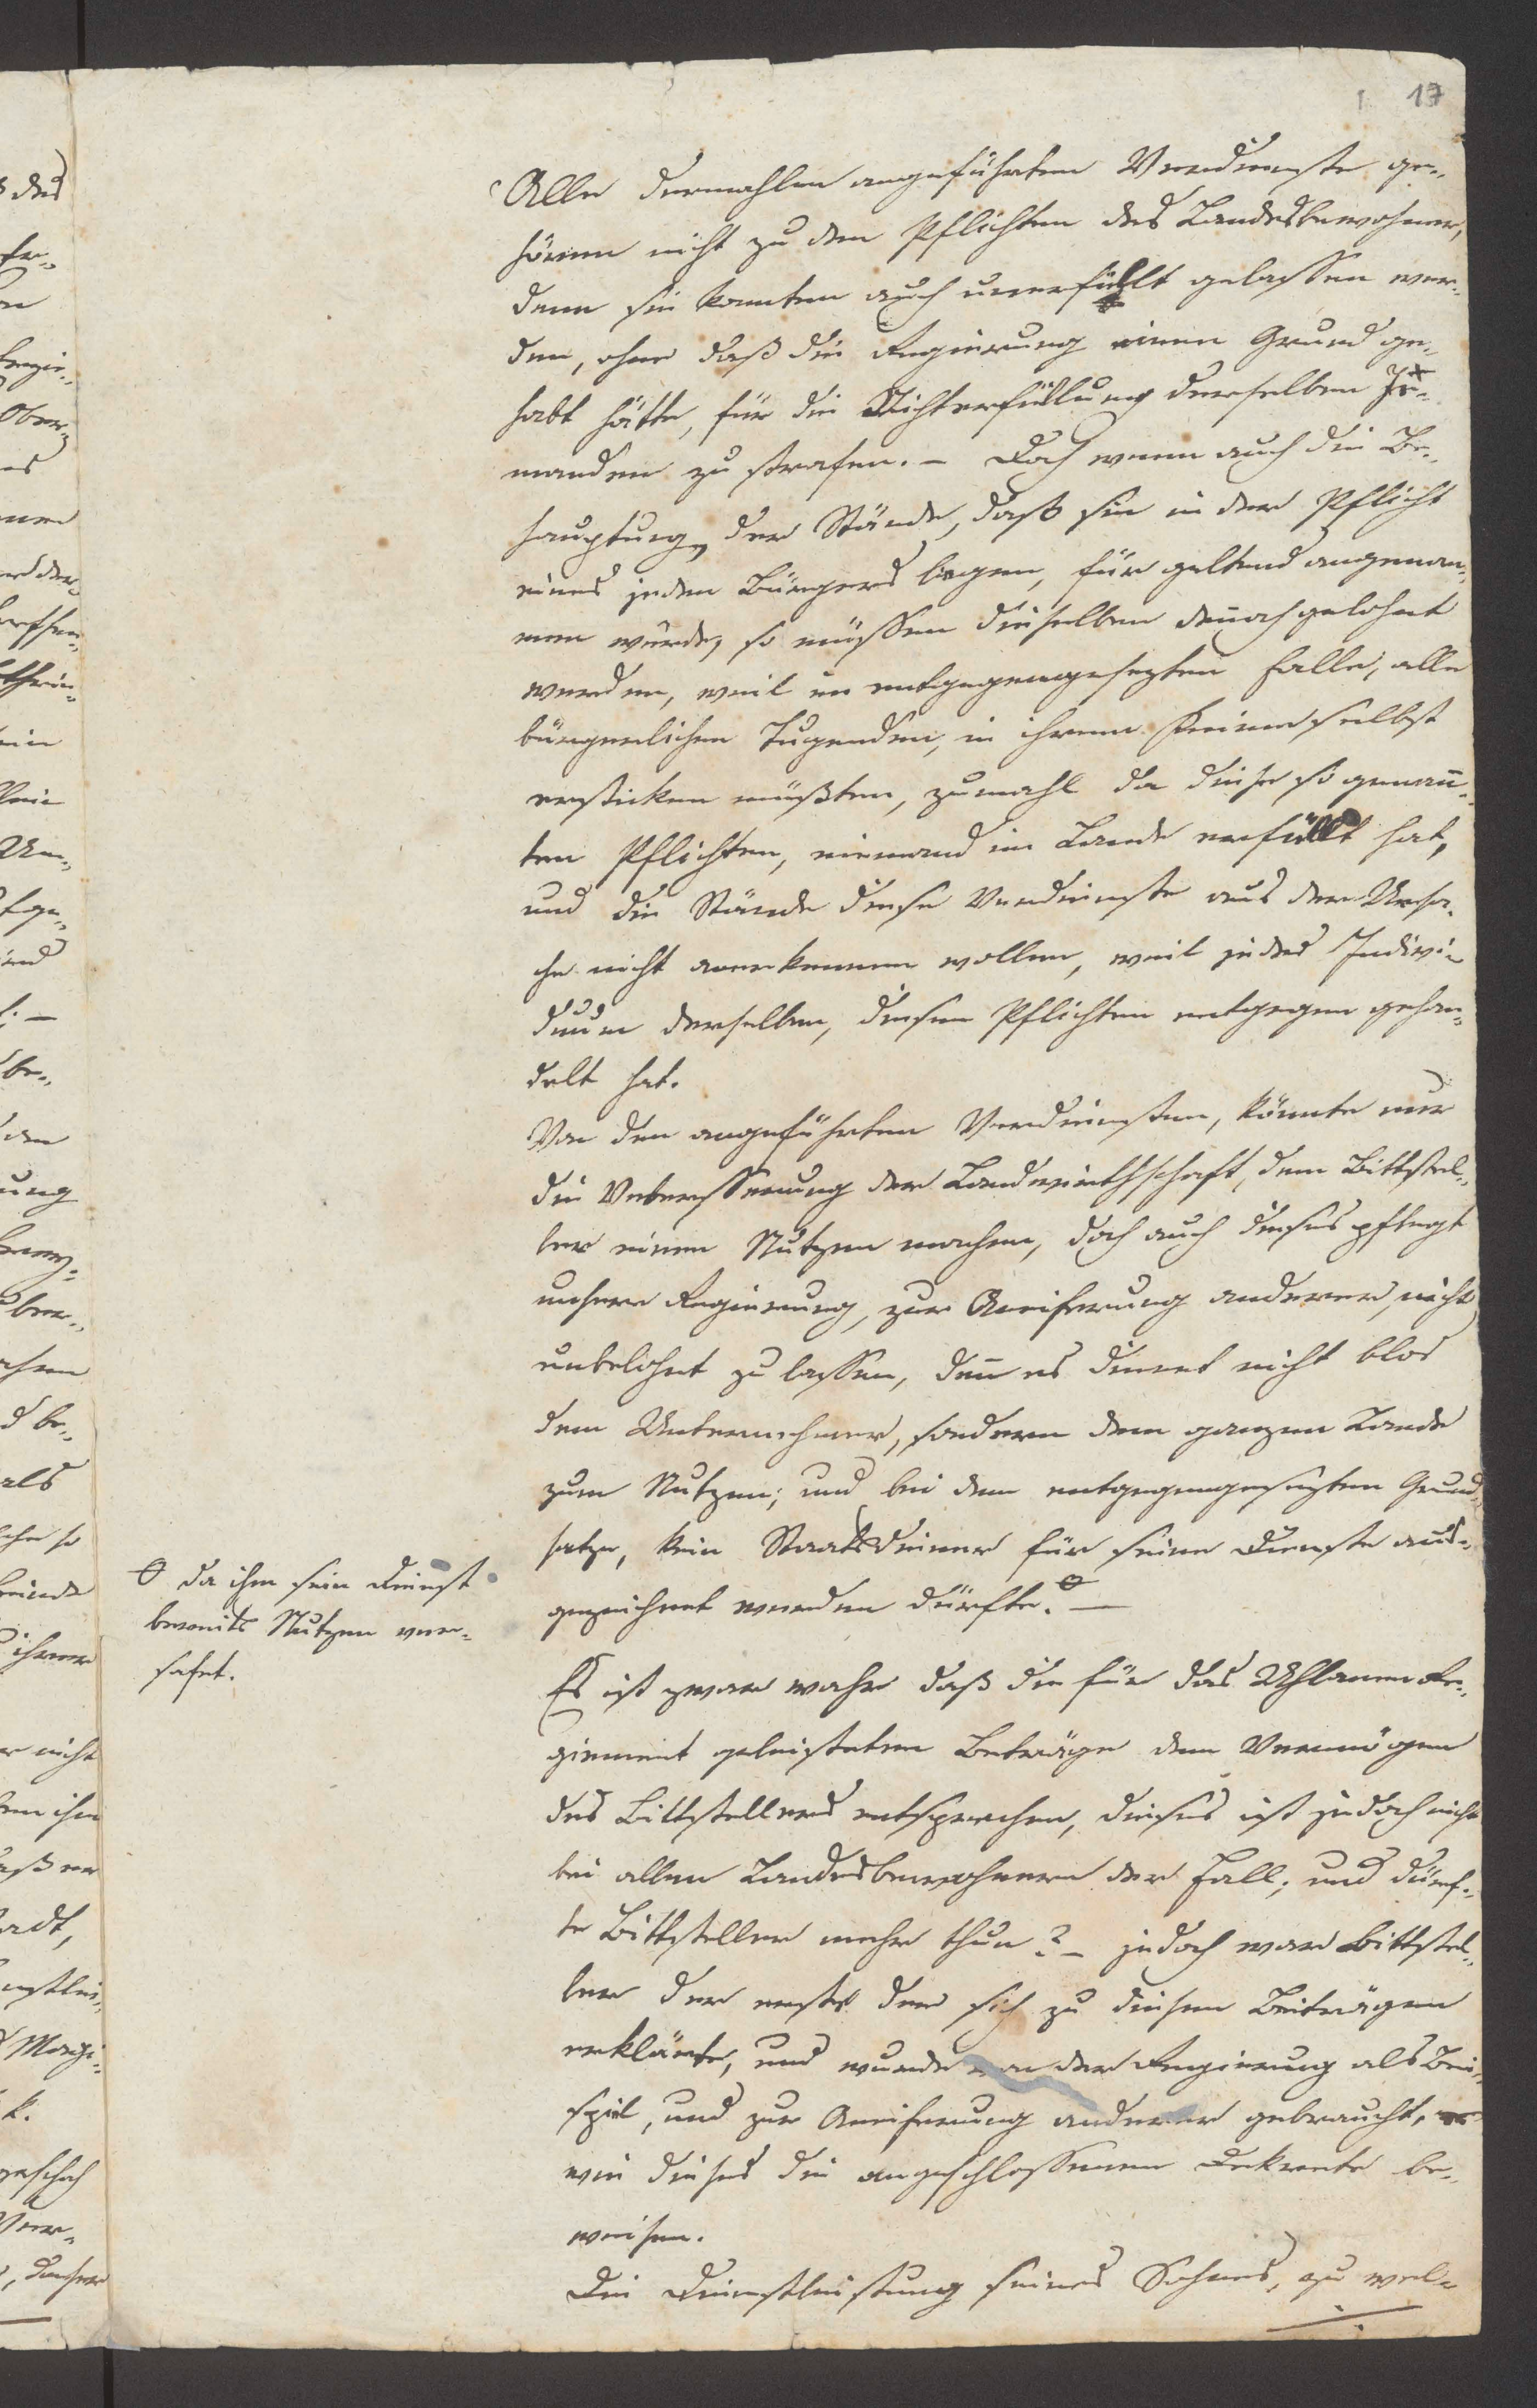 17
Alle dermahlen angeführten Verdienste ge„
hören nicht zu den Pflichten des Landesbewohners,
denn sie konnten auch unerfüllt gelassen wer„
den, ohne daß die Regierung einen Grund ge„
habt hätte, für die Nichterfüllung derselben Je„
manden zu strafen. – Doch wenn auch die Be„
hauptung der Stände, daß sie in der Pflicht
eines jeden Bürgers liegen, für geltend angenom„
men würde, so müssen dieselben dennoch gelohnt
werden, weil im entgegengesezten Falle, alle
bürgerlichen Tugenden, in ihrem Keime selbst
ersticken müßten, zumahl da diese so genan̄„
ten Pflichten, niemand im Lande erfüllt hat,
und die Stände diese Verdienste aus der Ursa„
che nicht anerkennen wollen, weil jedes Indivi„
duum derselben, diesen Pflichten entgegen gehan„
delt hat.
Von den angeführten Verdiensten, könnte nur
die Verbesserung der Landwirthschaft, dem Bittstel„
ler einen Nutzen machen, doch auch dieses pflegt
unsere Regierung, zur Aneiferung anderer, nicht
unbelohnt zu lassen, den̄ es dienet nicht blos
dem Unternehmer, sondern dem ganzen Lande
zum Nutzen; und bei dem entgegengesezten Grund„
satze, kein Staatsdiener für seine Dienste aus„
gezeichnet werden dürfte. –
da ihm sein Dienst
bereits Nutzen ver„
schafet.
Es ist zwar wahr daß die für das Uhlanen Re„
giment geleisteten Beträge dem Vermögen
des Bittstellers entsprechen, dieses ist jedoch nicht
bei allen Landesbewohnern der Fall; und dürf„
te Bittsteller mehr thun? – jedoch war Bittstel„
ler der erste der sich zu diesen Beiträgen
erklärte, und wurde von der Regierung als Bei„
spiel, und zur Aneiferung anderer gebraucht,
wie dieses die angeschlossenen Dekrete be„
weisen.
Die Dienstleistung seines Sohnes, zu wel„